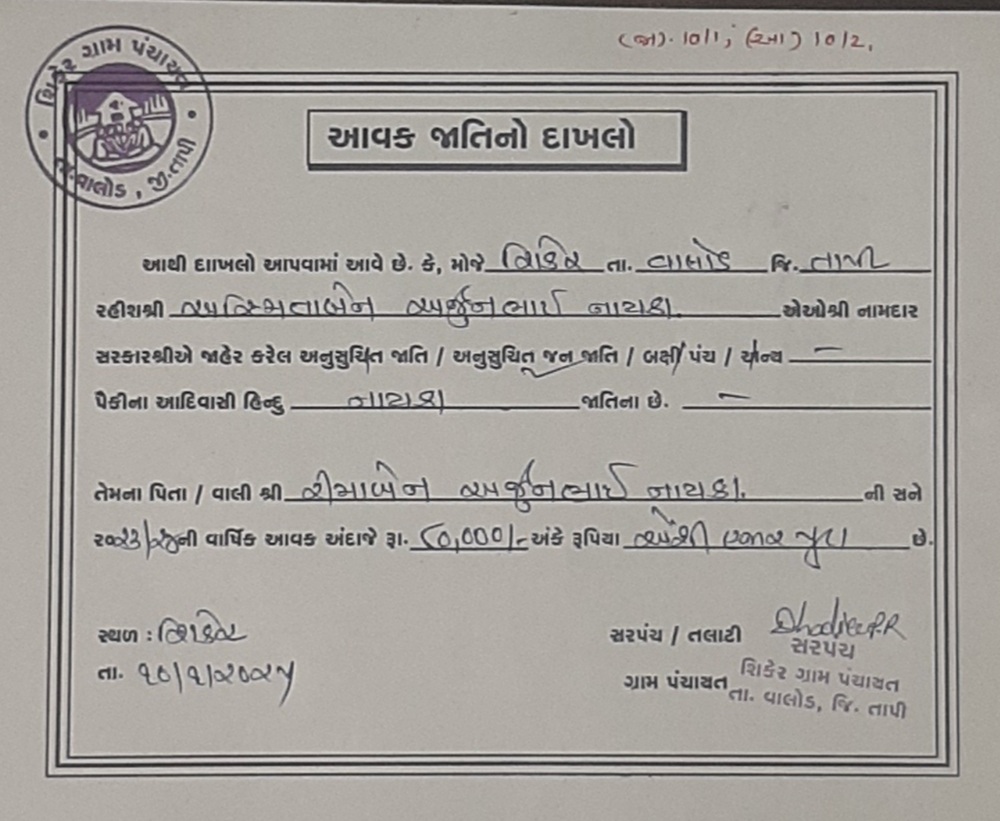 (જા). 10/1, (આ) 10/2,
શિકેર ગ્રામ પંચાયત
તા. વાલોડ, જી. તાપી
આવક જાતિનો દાખલો
આથી દાાખલો આપવામાં આવે છે. કે, મોજે શિકેર તા. વાલોડ જિ. તાપી
રહીશશ્રી અસ્મિતાબેન અર્જુનભાઈ નાયકા. એઓશ્રી નામદાર
સરકારશ્રીએ જાહેર કરેલ અનુસુચિત જાતિ / અનુસુચિત જન જાતિ / બક્ષી પંચ / અન્ય —
પૈકીના આદિવાસી હિન્દુ નાયકા જાતિના છે. —
તેમના પિતા / વાલી શ્રી અર્જુનભાઈ નાયકા. ની સને
૨૦૨૩/૨૪ની વાર્ષિક આવક અંદાજે રૂા. ૮૦,૦૦૦/- અંકે રૂપિયા એંશી હજાર પુરા છે.
સ્થળ : શિકેર
તા. ૧૦/૧/૨૦૨૫
સરપંચ / તલાટી
સરપંચ
ગ્રામ પંચાયત
શિકેર ગ્રામ પંચાયત
તા. વાલોડ, જિ. તાપી